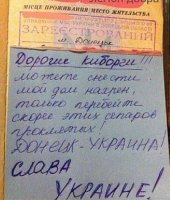 МІСЦЕ ПРОЖИВАННЯ МЕСТО ЖИТЕЛЬСТВА
ЗАРЕЄСТРОВАНИЙ
м. Донецьк
Дорогие Киборги!!!
можете снести
мой дом нахрен,
только перебейте
скорее этих сепаров
проклятых!
ДОНЕЦК-УКРАИНА!
СЛАВА
УКРАИНЕ!